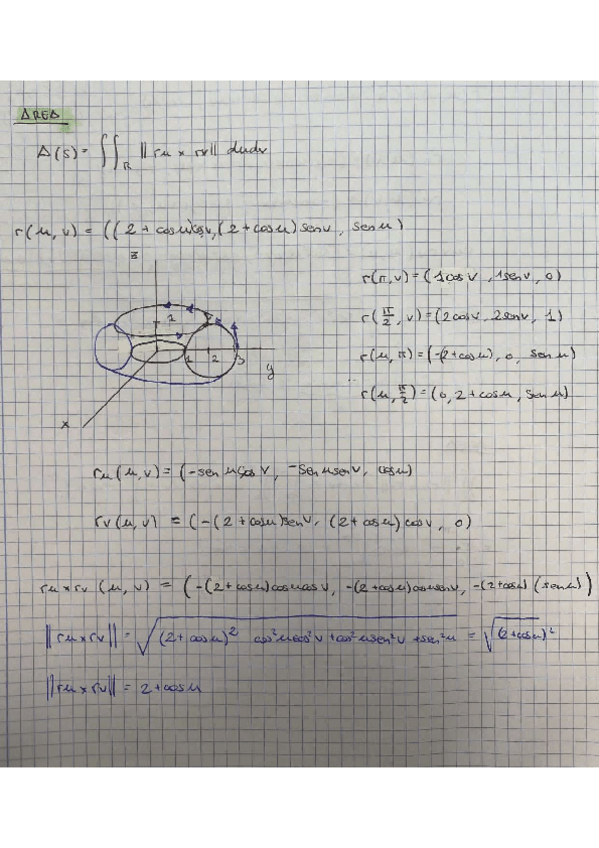 AREA
A(S) = ∫∫_R ‖ru × rv‖ dudv
r(u, v) = ((2 + cosu)cosv, (2 + cosu) senv, senu)
z
r(π, v) = (1cosv, 1senv, 0)
r(π/2, v) = (2cosv, 2senv, 1)
1 2 3
y
r(u, π) = (-(2+cosu), 0, senu)
r(u, π/2) = (0, 2 + cosu, senu)
x
ru(u, v) = (-senucosv, -senusenv, cosu)
rv(u, v) = (-(2+cosu)senv, (2+cosu)cosv, 0)
ru×rv (u, v) = (-(2+cosu)cosucosv, -(2+cosu)cosusenv, -(2+cosu)(senu))
‖ru×rv‖ = √((2+cosu)² cos²ucos²v + cos²usen²v + sen²u) = √(2+cosu)²
‖ru×rv‖ = 2+cosu